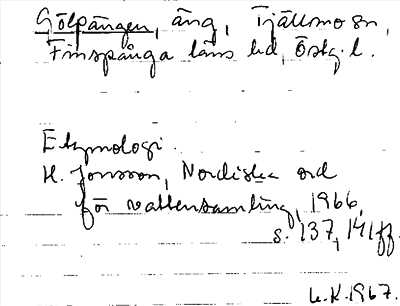 Gölpängen, äng, Tjällmo sn,
Finspånga läns hd, Östg. l.
Etymologi.
H. Jonsson, Nordiska ord
för vattensamling, 1966,
s. 137, 141 ff.
L.K. 1967.